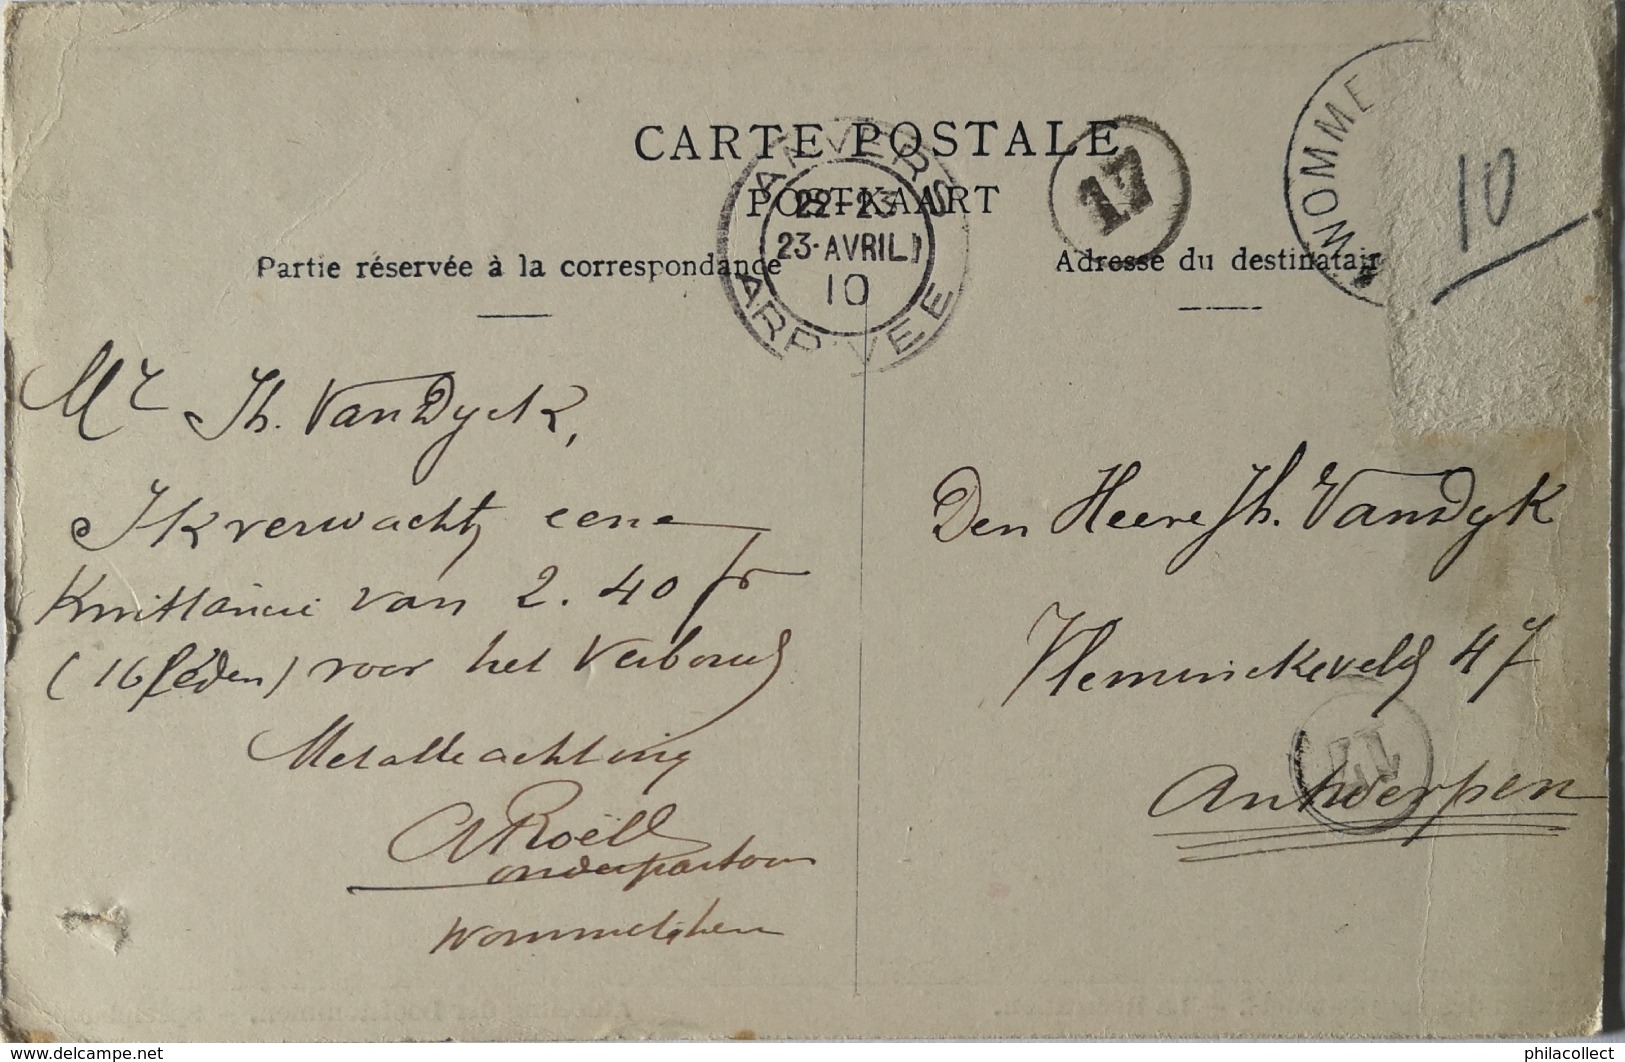 CARTE POSTALE
POSTKAART
ANVERS
22-23
23·AVRIL
10
ARRIVEE
17
WOMME
10
Partie réservée à la correspondance
Adresse du destinatair
Mr Jh. Van Dyck,
Ik verwacht eene
Kwittancie van 2.40 fr
(16 leden) voor het Verbond
Met alle achting
Roëll
onderpastoor
Wommelghem
Den Heere Jh. Van Dyk
Vleminckxveld 47
Antwerpen
17
philacollect